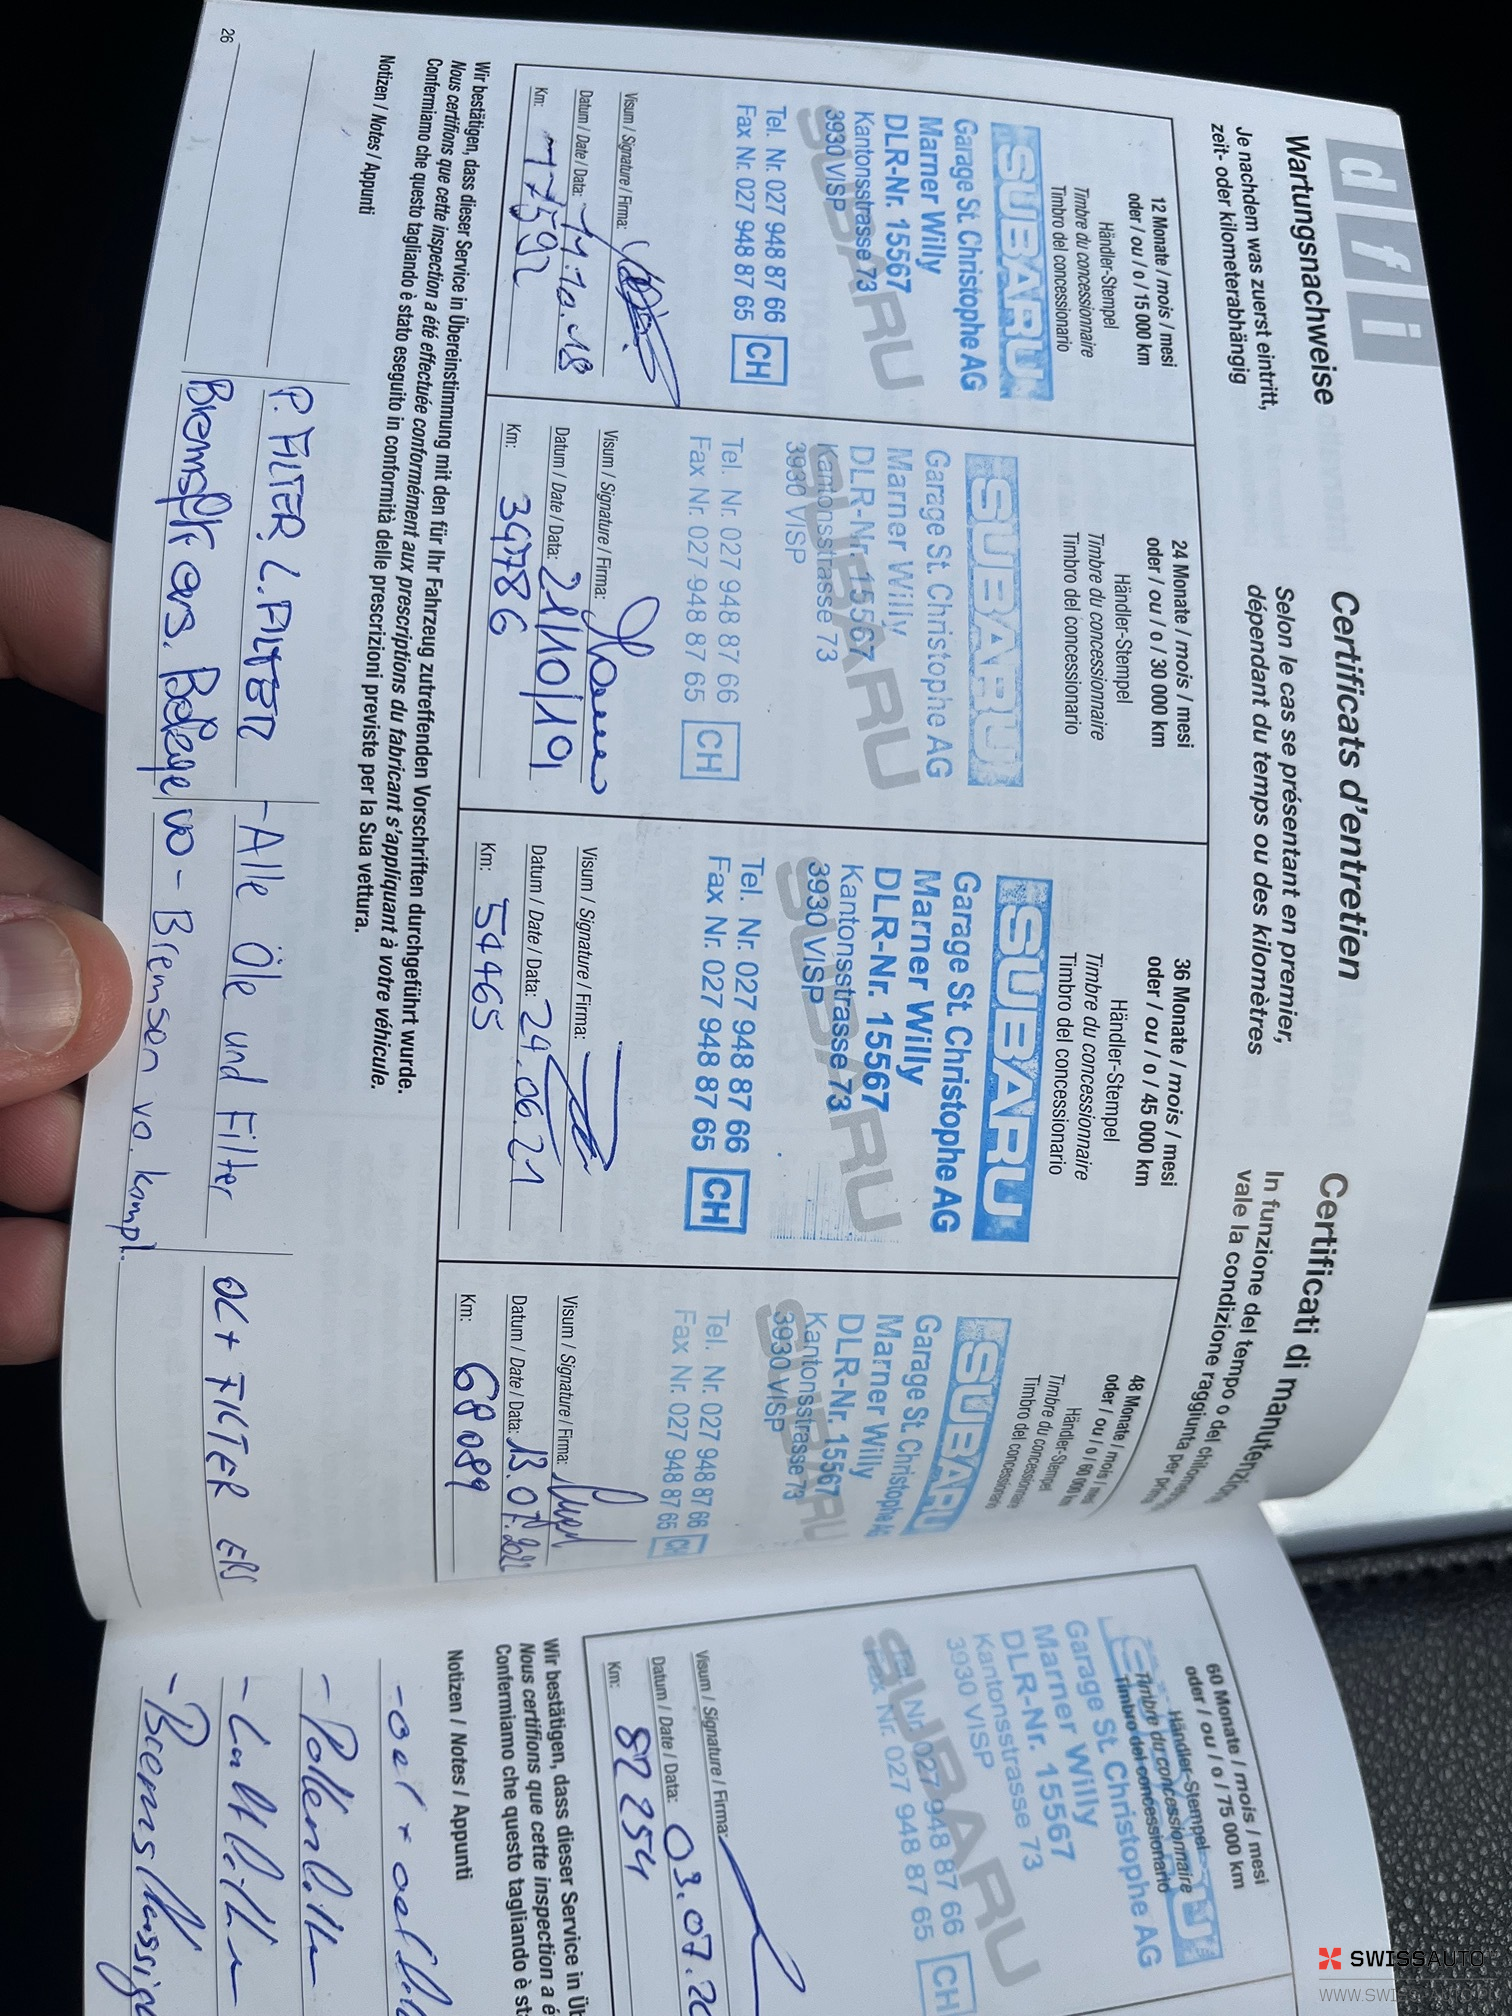 d f i
Wartungsnachweise
Je nachdem was zuerst eintritt,
zeit- oder kilometerabhängig
Certificats d'entretien
Selon le cas se présentant en premier,
dépendant du temps ou des kilomètres
Certificati di manutenzione
In funzione del tempo o dei
vale la condizione raggiunta per
12 Monate / mois / mesi
oder / ou / o / 15 000 km
Händler-Stempel
Timbre du concessionnaire
Timbro del concessionario
SUBARU
SUBARU
Garage St. Christophe AG
Marner Willy
DLR-Nr. 15567
Kantonsstrasse 73
3930 VISP
Tel. Nr. 027 948 87 66
Fax Nr. 027 948 87 65
CH
Visum / Signature / Firma:
Datum / Date / Data: 11.10.18
Km: 17592
24 Monate / mois / mesi
oder / ou / o / 30 000 km
Händler-Stempel
Timbre du concessionnaire
Timbro del concessionario
SUBARU
SUBARU
Garage St. Christophe AG
Marner Willy
DLR-Nr. 15567
Kantonsstrasse 73
3930 VISP
Tel. Nr. 027 948 87 66
Fax Nr. 027 948 87 65
CH
Visum / Signature / Firma:
Datum / Date / Data: 21/10/19
Km: 34786
36 Monate / mois / mesi
oder / ou / o / 45 000 km
Händler-Stempel
Timbre du concessionnaire
Timbro del concessionario
SUBARU
SUBARU
Garage St. Christophe AG
Marner Willy
DLR-Nr. 15567
Kantonsstrasse 73
3930 VISP
Tel. Nr. 027 948 87 66
Fax Nr. 027 948 87 65
CH
Visum / Signature / Firma:
Datum / Date / Data: 24.06.21
Km: 54465
48 Monate / mois /
oder / ou / o / 60 000
Händler-Stempel
Timbre du concessionnaire
Timbro del concessionario
SUBARU
SUBARU
Garage St. Christophe
Marner Willy
DLR-Nr. 15567
Kantonsstrasse 73
3930 VISP
Tel. Nr. 027 948 87 66
Fax Nr. 027 948 87 65
CH
Visum / Signature / Firma:
Datum / Date / Data: 13.07.2022
Km: 68089
Wir bestätigen, dass dieser Service in Übereinstimmung mit den für Ihr Fahrzeug zutreffenden Vorschriften durchgeführt wurde.
Nous certifions que cette inspection a été effectuée conformément aux prescriptions du fabricant s'appliquant à votre véhicule.
Confermiamo che questo tagliando è stato eseguito in conformità delle prescrizioni previste per la Sua vettura.
Notizen / Notes / Appunti
P. FILTER, L. FILTER
ers. Beläge vo
- Alle Öle und Filter
- Bremsen vo. kompl.
FILTER ERS
26
60 Monate / mois / mesi
oder / ou / o / 75 000 km
Händler-Stempel
Timbre du concessionnaire
Timbro del concessionario
SUBARU
Garage St. Christophe AG
Marner Willy
DLR-Nr. 15567
Kantonsstrasse 73
3930 VISP
Nr. 027 948 87 66
Nr. 027 948 87 65
CH
Visum / Signature / Firma:
Datum / Date / Data: 03.07.20
Km: 82254
Wir bestätigen, dass dieser Service in
Nous certifions que cette inspection a
Confermiamo che questo tagliando è
Notizen / Notes / Appunti
SWISSAUTO